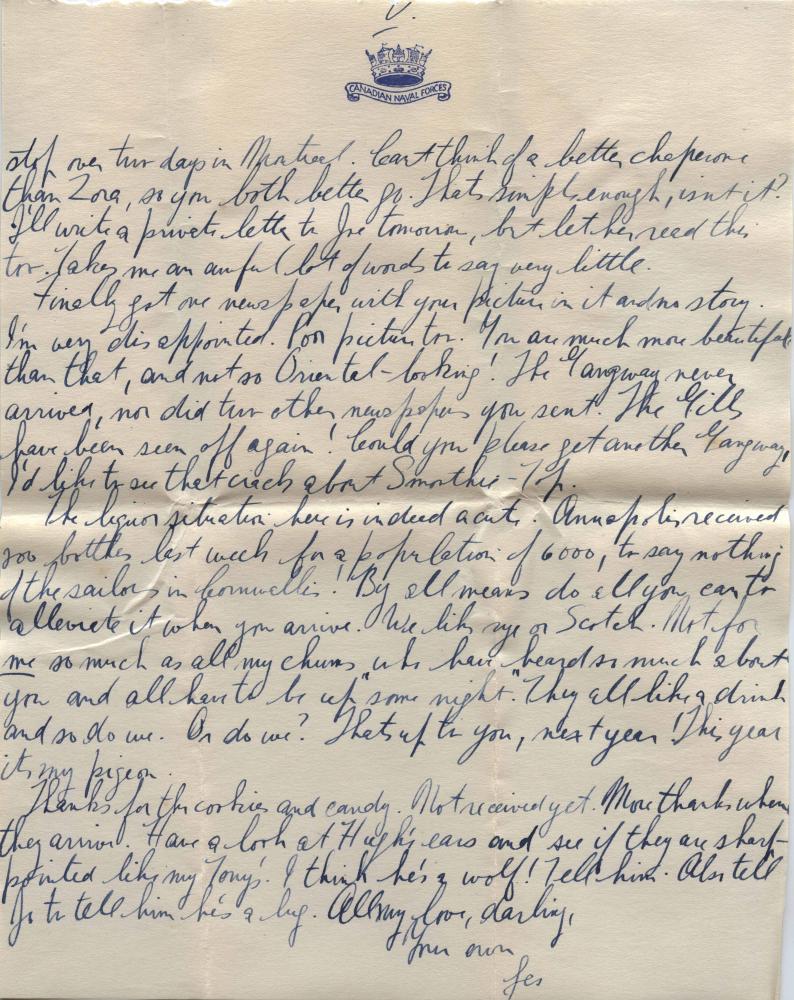 V.
CANADIAN NAVAL FORCES
stop over two days in Montreal. Can't think of a better chaperone
than Zora, so you both better go. Thats simple enough, isnt it?
I'll write a private letter to Joe tomorrow, but let her read this
too. Takes me an awful lot of words to say very little.
Finally got one newspaper with your picture in it and no story.
I'm very disappointed. Poor picture too. You are much more beautiful
than that, and not so Oriental-looking! The Gangway never
arrived, nor did two other newspapers you sent. The Gills
have been seen off again! Could you please get another Gangway,
I'd like to see that crack about Smoothie-Top.
The liquor situation here is indeed acute. Annapolis received
200 bottles last week for a population of 6000, to say nothing
of the sailors in Cornwallis! By all means do all you can to
alleviate it when you arrive. We like rye or Scotch. Not for
me so much as all my chums who have heard so much about
you and all have to be up "some night." They all like a drink
and so do we. Or do we? Thats up to you, next year! This year
its my pigeon.
Thanks for the cookies and candy. Not received yet. More thanks when
they arrive. Have a look at Hugh's ears and see if they are sharp-
pointed like my Tony's. I think he's a wolf! Tell him. Also tell
Jo to tell him he's a lug. All my love, darling,
Your own
Les